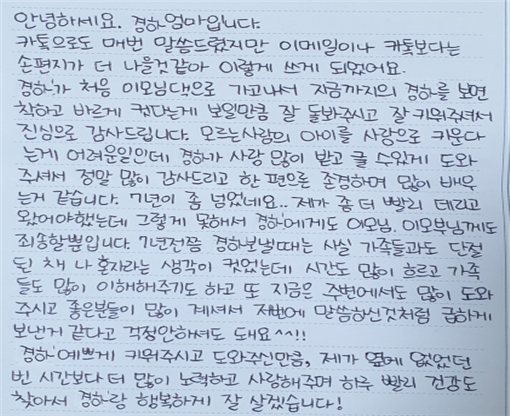 안녕하세요. 경하엄마입니다.
카톡으로도 매번 말씀드렸지만 이메일이나 카톡보다는
손편지가 더 나을것같아 이렇게 쓰게 되었어요.
경하가 처음 이모님댁으로 가고나서 지금까지의 경하를 보면
착하고 바르게 컸다는게 보일만큼 잘 돌봐주시고 잘 키워주셔서
진심으로 감사드립니다. 모르는사람의 아이를 사랑으로 키운다
는게 어려운일인데 경하가 사랑 많이 받고 클 수있게 도와
주셔서 정말 많이 감사드리고 한 편으론 존경하며 많이 배우
는거 같습니다. 7년이 좀 넘었네요.. 제가 좀 더 빨리 데리고
왔어야했는데 그렇게 못해서 경하에게도 이모님. 이모부님께도
죄송할뿐입니다. 7년전쯤 경하보낼때는 사실 가족들과도 단절
된 채 나 혼자라는 생각이 컸었는데 시간도 많이 흐르고 가족
들도 많이 이해해주기도 하고 또 지금은 주변에서도 많이 도와
주시고 좋은분들이 많이 계셔서 저번에 말씀하신것처럼 급하게
보낸거 같다고 걱정안하셔도 돼요^^!!
경하 예쁘게 키워주시고 도와주신만큼, 제가 옆에 없었던
빈 시간보다 더 많이 노력하고 사랑해주며 하루 빨리 건강도
찾아서 경하랑 행복하게 잘 살겠습니다!